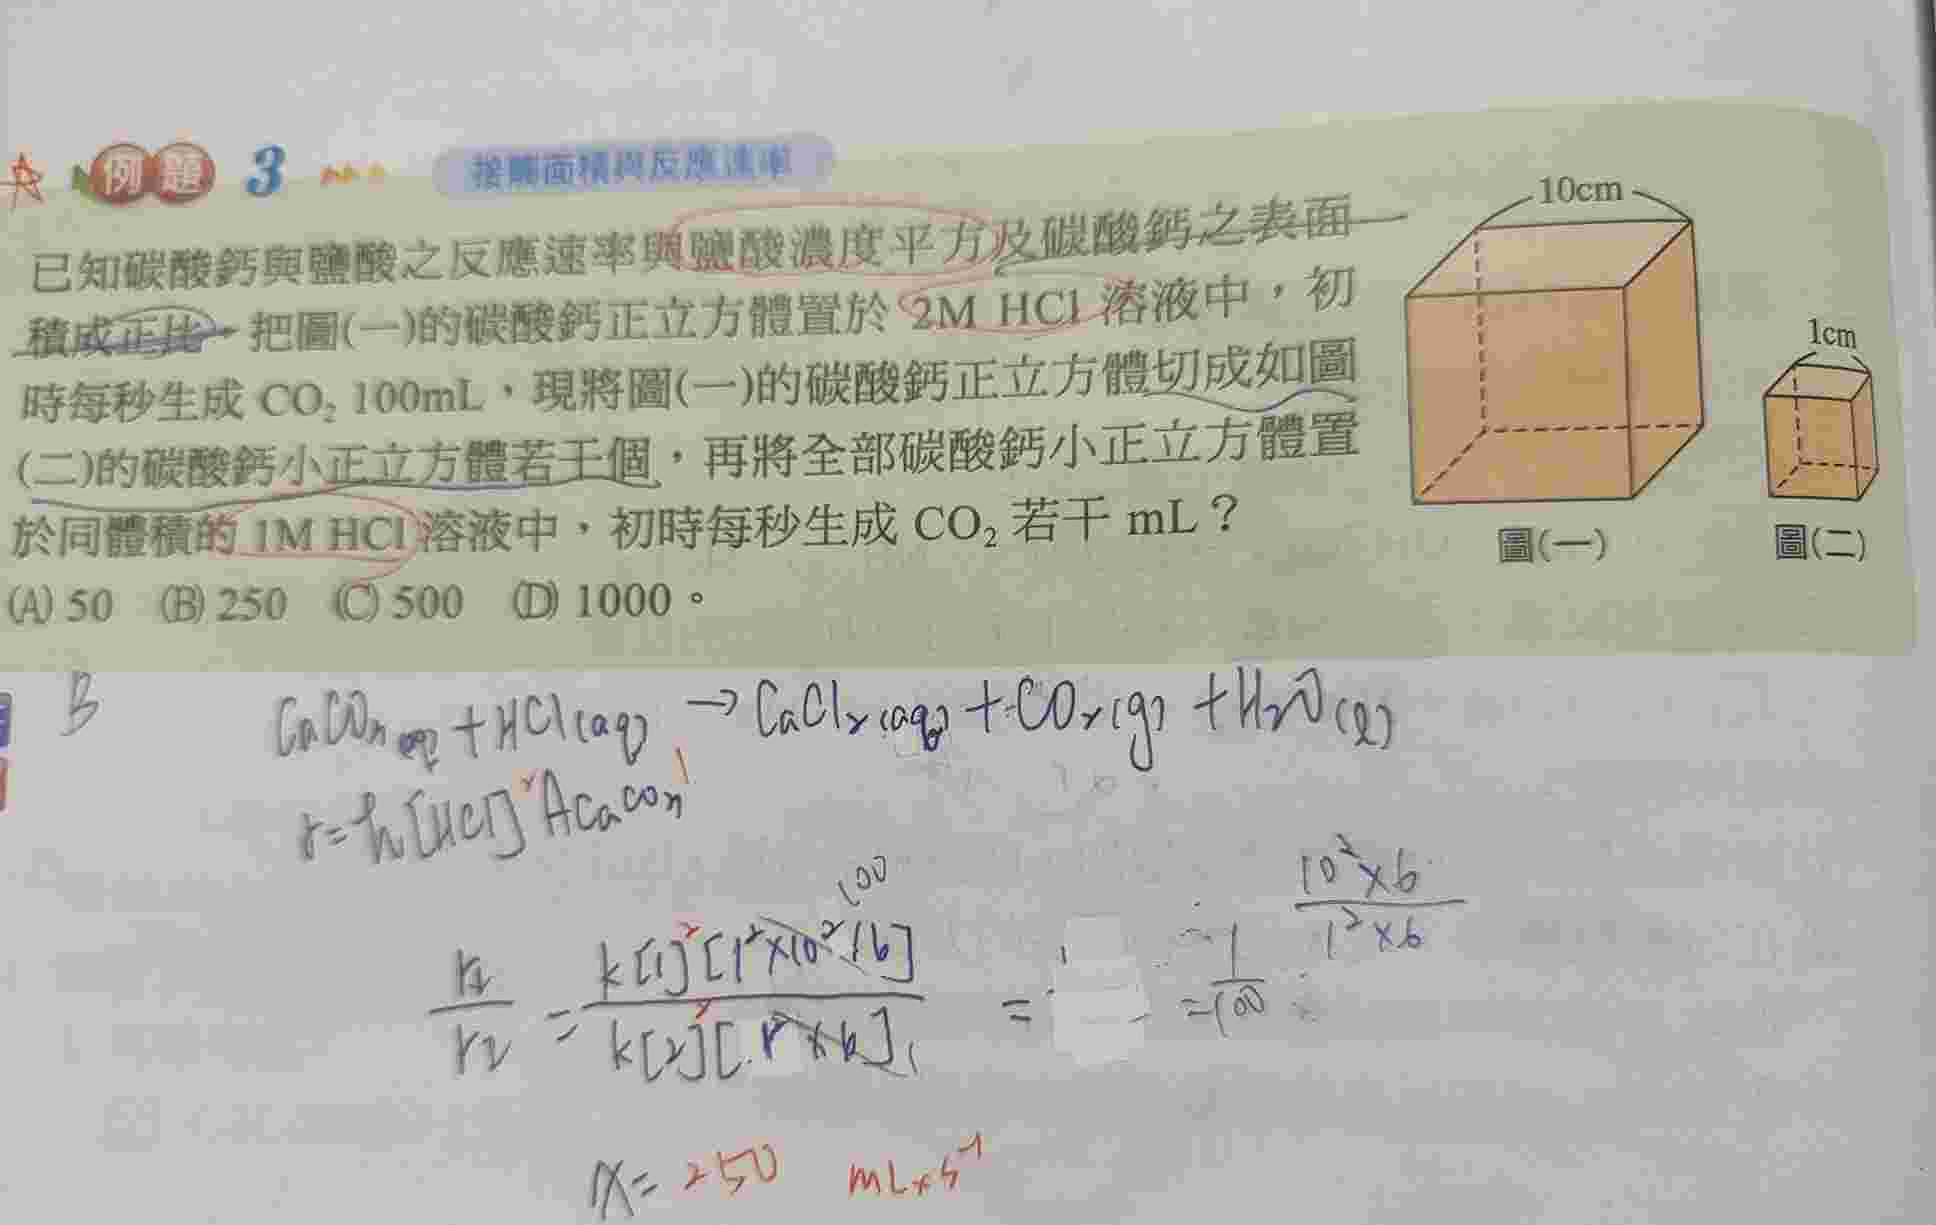 例題 3 接觸面積與反應速率
已知碳酸鈣與鹽酸之反應速率與鹽酸濃度平方及碳酸鈣之表面
積成正比，把圖(一)的碳酸鈣正立方體置於 2M HCl 溶液中，初
時每秒生成 CO₂ 100mL，現將圖(一)的碳酸鈣正立方體切成如圖
(二)的碳酸鈣小正立方體若干個，再將全部碳酸鈣小正立方體置
於同體積的 1M HCl 溶液中，初時每秒生成 CO₂ 若干 mL？
(A) 50 (B) 250 (C) 500 (D) 1000。
10cm
1cm
圖(一)
圖(二)
B
CaCO₃ + HCl(aq) → CaCl₂(aq) + CO₂(g) + H₂O(l)
r = k[HCl]² ACaCO₃¹
100
10²×6
1²×6
k[1]²
k[2]²
= 1/100
x = 250 mL×s⁻¹